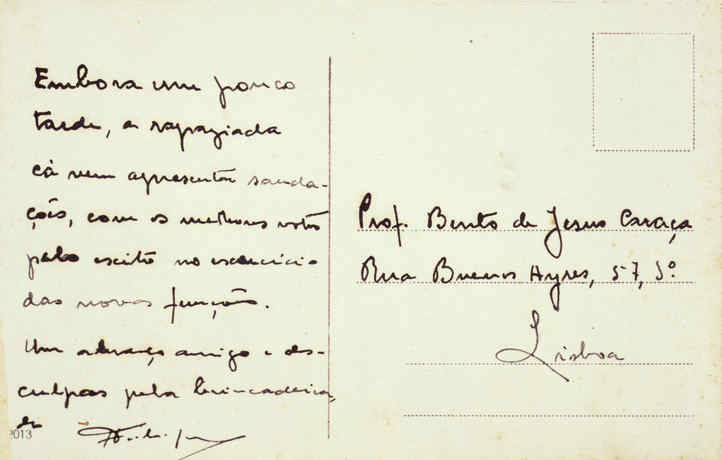 Embora um pouco
tarde, a rapaziada
cá vem apresentar sauda-
ções, com os melhores votos
pelo exito no exercicio
das novas funções.
Um abraço amigo e des-
culpas pela brincadeira,
de
2013
Prof. Bento de Jesus Caraça
Rua Buenos Ayres, 57, 3º
Lisboa